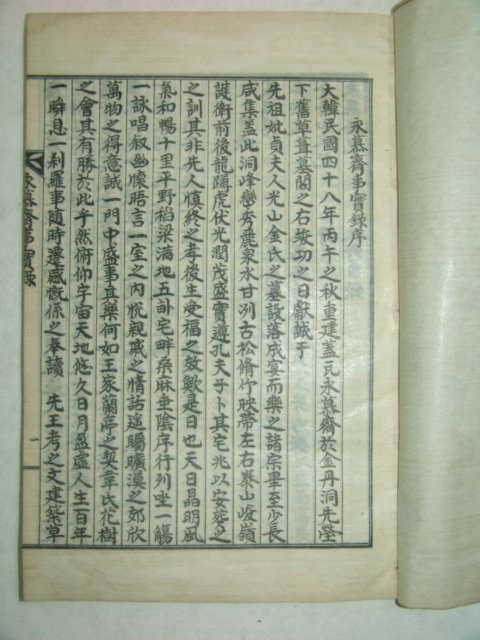 永慕齋事實錄序
大韓民國四十八年丙午之秋重建蓋瓦永慕齋於金丹洞先塋
下舊草葺墓閣之右竣功之日獻誠于
先祖妣貞夫人光山金氏之墓設落成宴而樂之諸宗畢至少長
咸集盖此洞峰巒秀麗泉水甘冽古松脩竹映帶左右泰山峻嶺
護衛前後龍蹲虎伏光潤茂盛實遵孔夫子卜其宅兆以安窆之
之訓其非先人愼終之孝後生受福之效歟是日也天日晶明風
氣和暢十里平野稻粱滿地五畝宅畔桑麻垂陰序行列坐一觴
一詠唱叙幽懷晤言一室之內悅親戚之情話遙矚曠漠之郊欣
萬物之得意誠一門中盛事宜樂何如王家蘭亭之契韋氏花樹
之會其有勝於此乎然俯仰宇宙天地悠久日月盈虛人生百年
一瞬息一刹羅事隨時遷感慨係之奉讀 先王考之文建築草
永慕齋事實錄
一